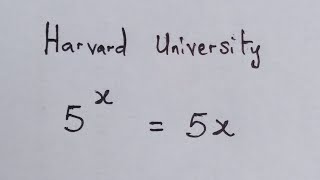 Harvard University
5^x = 5x